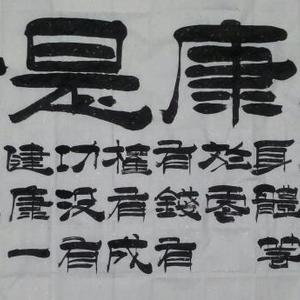 康是
身體等
於零
有錢有
權有成
功沒有
健康一